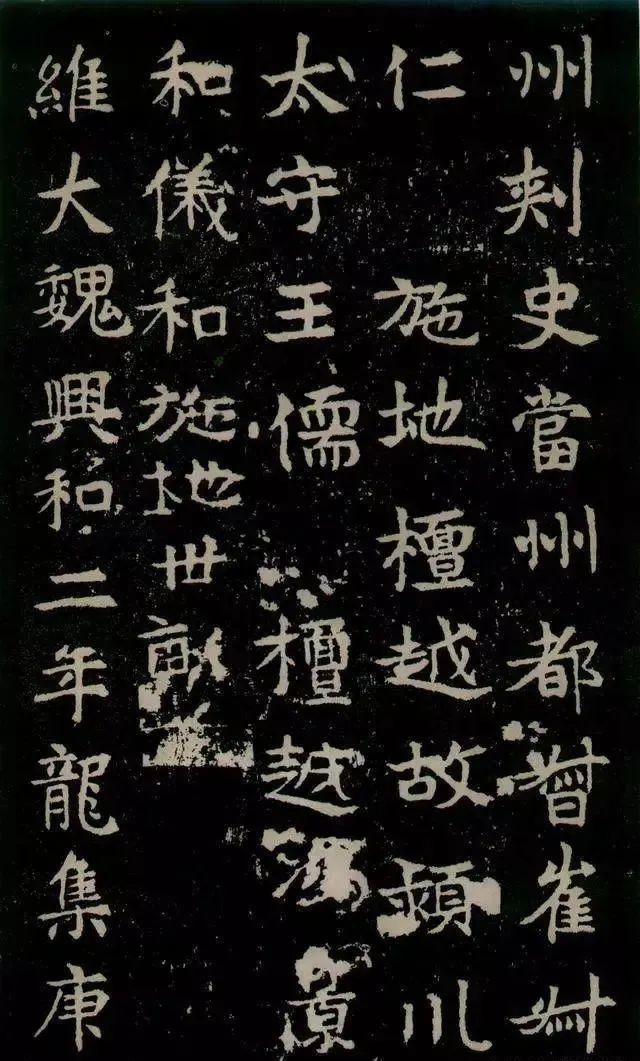 州刾史當州都督崔叔
仁施地檀越故頴川
太守王儒檀越
和儀和施地世畝
維大魏興和二年龍集庚